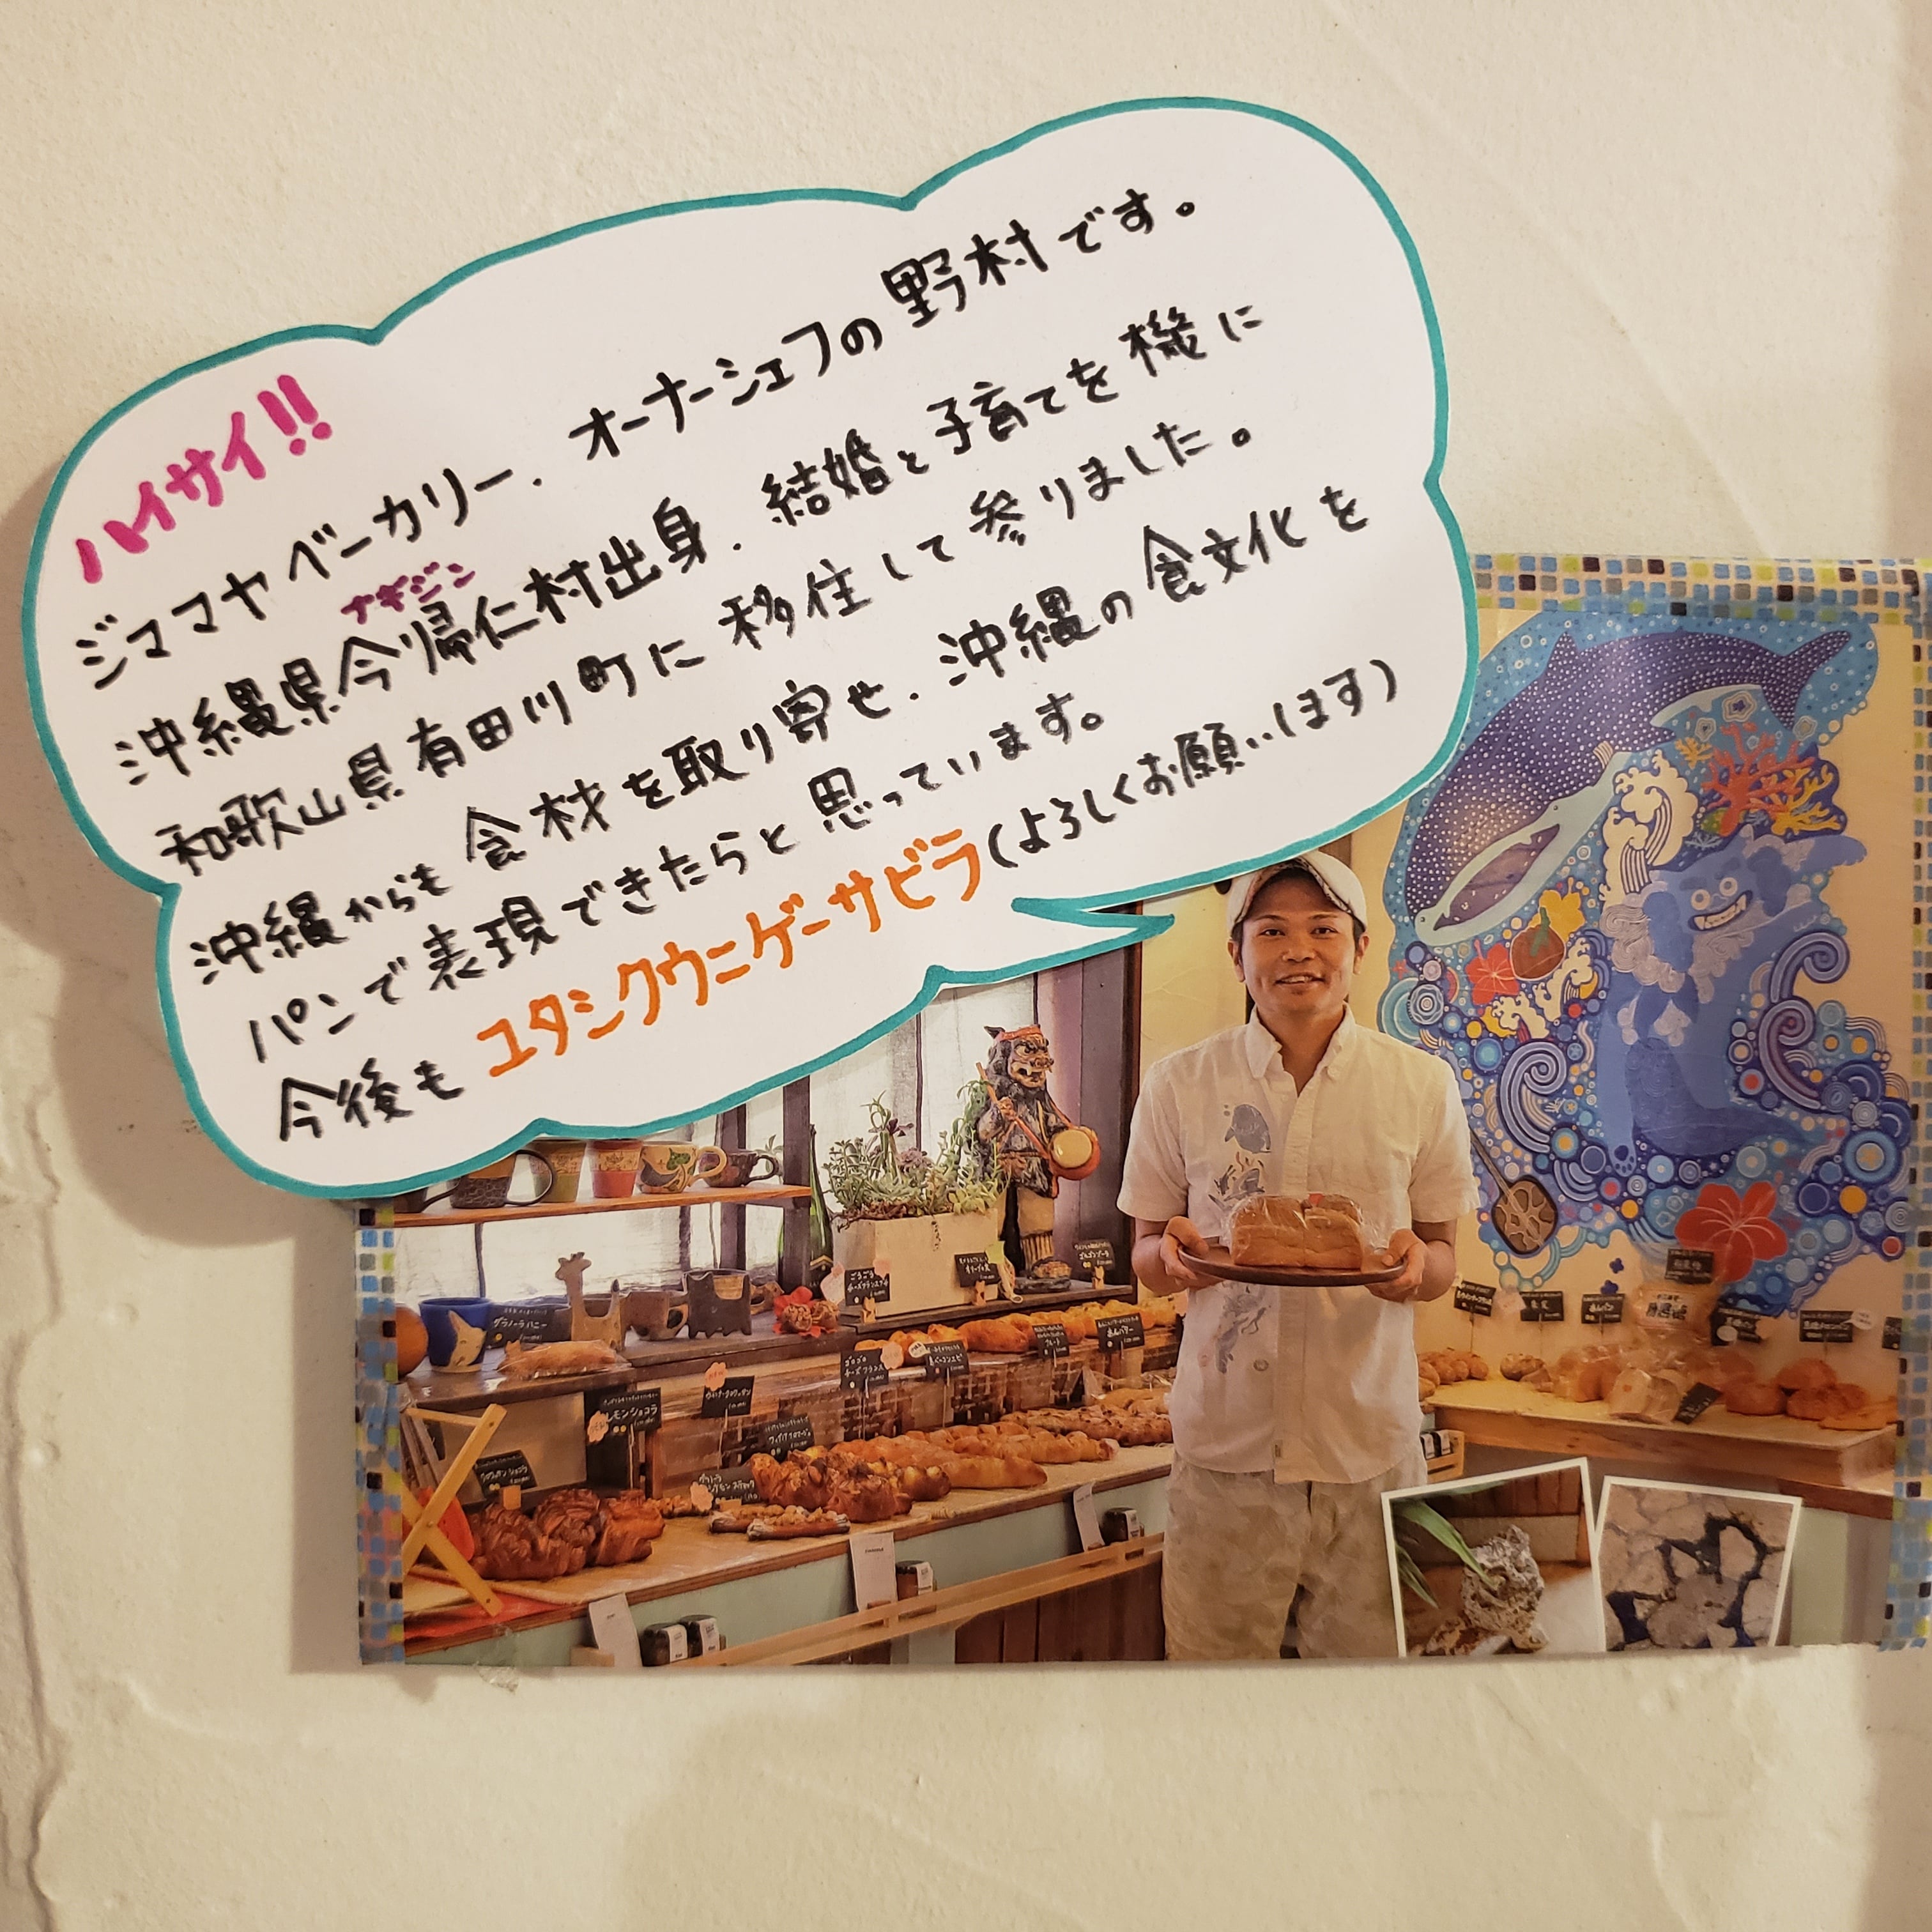 ハイサイ!!
ジママヤベーカリー、オーナーシェフの野村です。
ナキジン
沖縄県今帰仁村出身、結婚と子育てを機に
和歌山県有田川町に移住して参りました。
沖縄からも食材を取り寄せ、沖縄の食文化を
パンで表現できたらと思っています。
今後もユタシクウニゲーサビラ(よろしくお願いします)
レモンショコラ